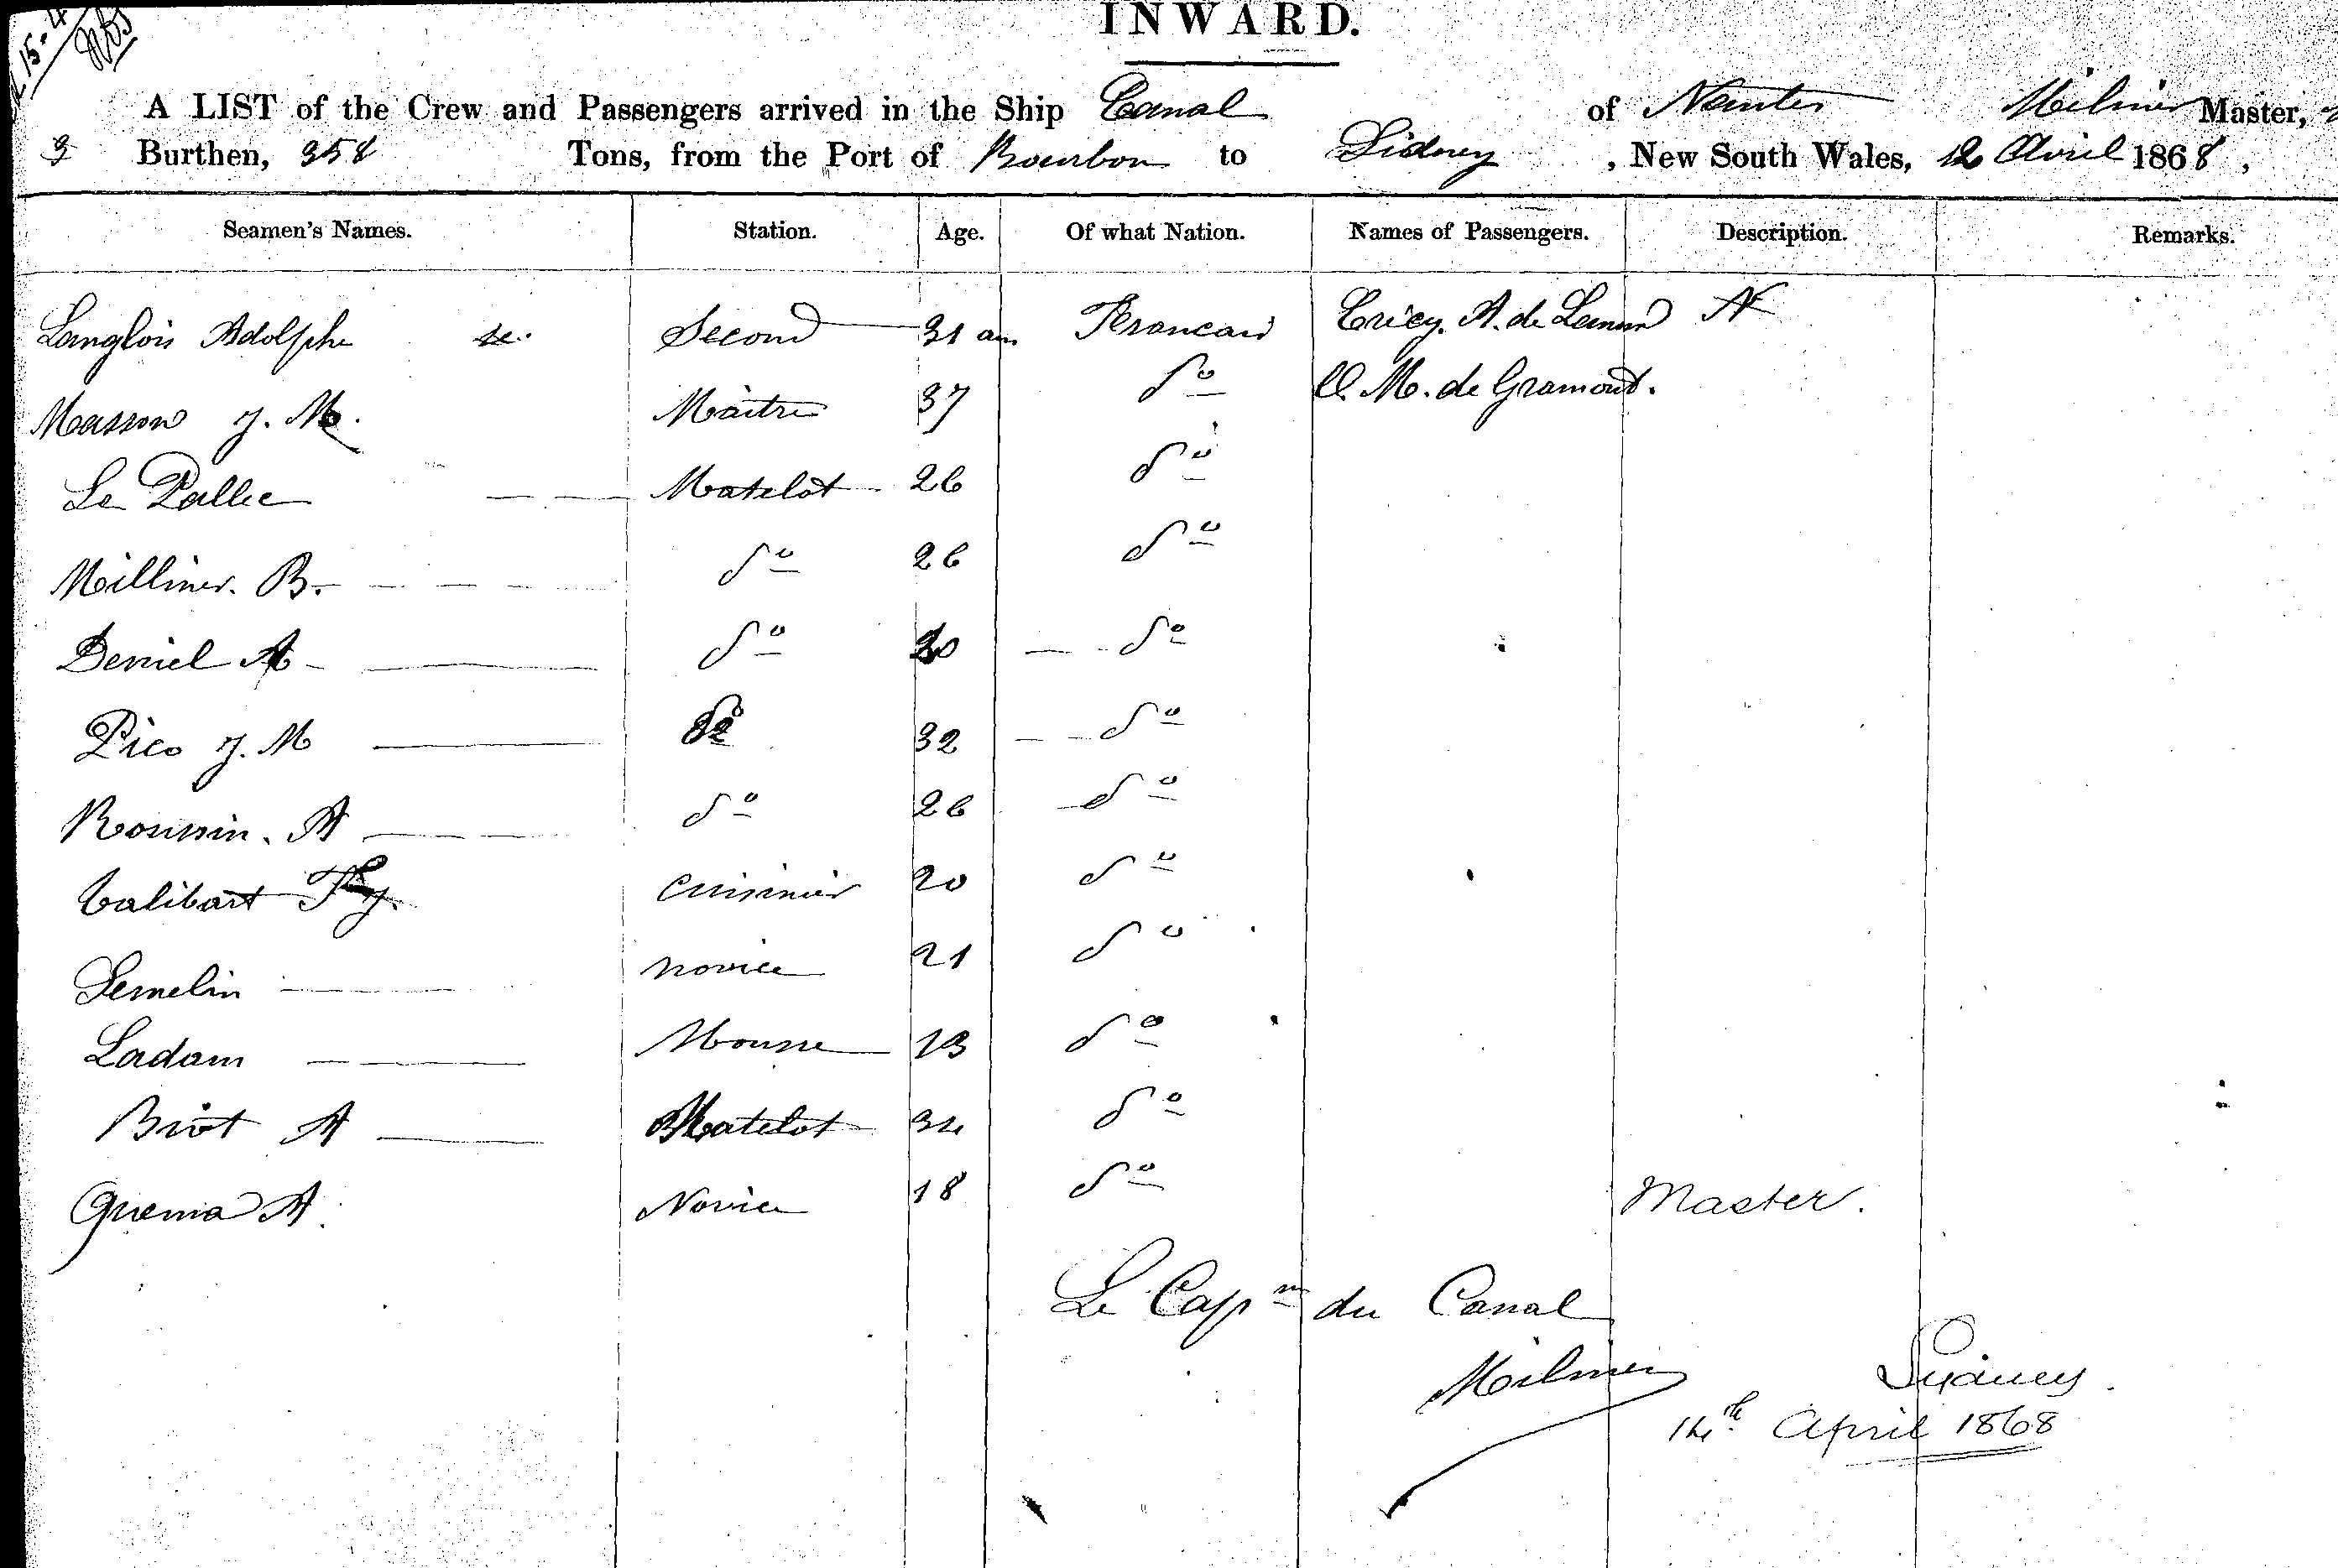 INWARD.
A LIST of the Crew and Passengers arrived in the Ship Canal of Nantes Milmer Master,
Burthen, 358 Tons, from the Port of Bourbon to Sidney , New South Wales, 12 Avril 1868 ,
Seamen's Names. Station. Age. Of what Nation. Names of Passengers. Description. Remarks.
Langlois Adolphe Second 31 ans Francais A. de
Masson J. M. Maitre 37 do M. de Gramont.
Le Pallec Matelot 26 do
Milliner. B. do 26 do
Deniel A do 20 do
Pico J. M do 32 do
Roussin. A do 26 do
Calibart Cuisinier 20 do
Semelin novice 21 do
Ladam Mousse 13 do
Biot A Matelot 34 do
Quema A. Novice 18 do Master.
Le Capne du Canal
Milmer Sydney.
14th April 1868